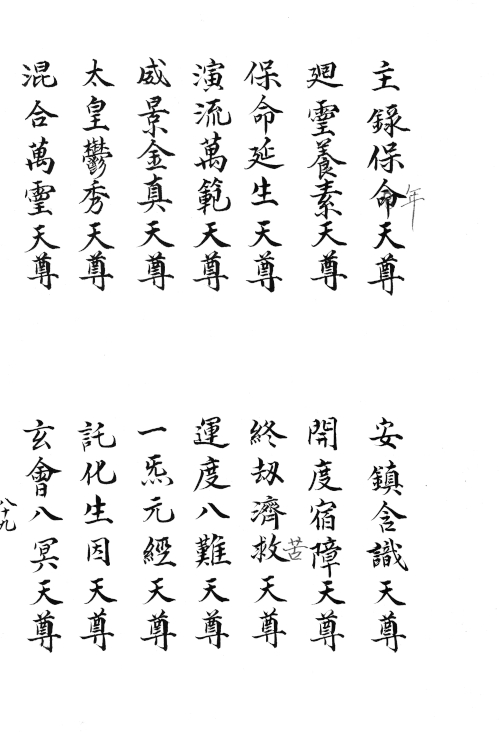 主錄保命天尊
年
安鎮含識天尊
廻靈養素天尊
開度宿障天尊
保命延生天尊
終劫濟救天尊
苦
演流萬範天尊
運度八難天尊
威景金真天尊
一炁元經天尊
太皇鬱秀天尊
託化生因天尊
混合萬靈天尊
玄會八冥天尊
八十九